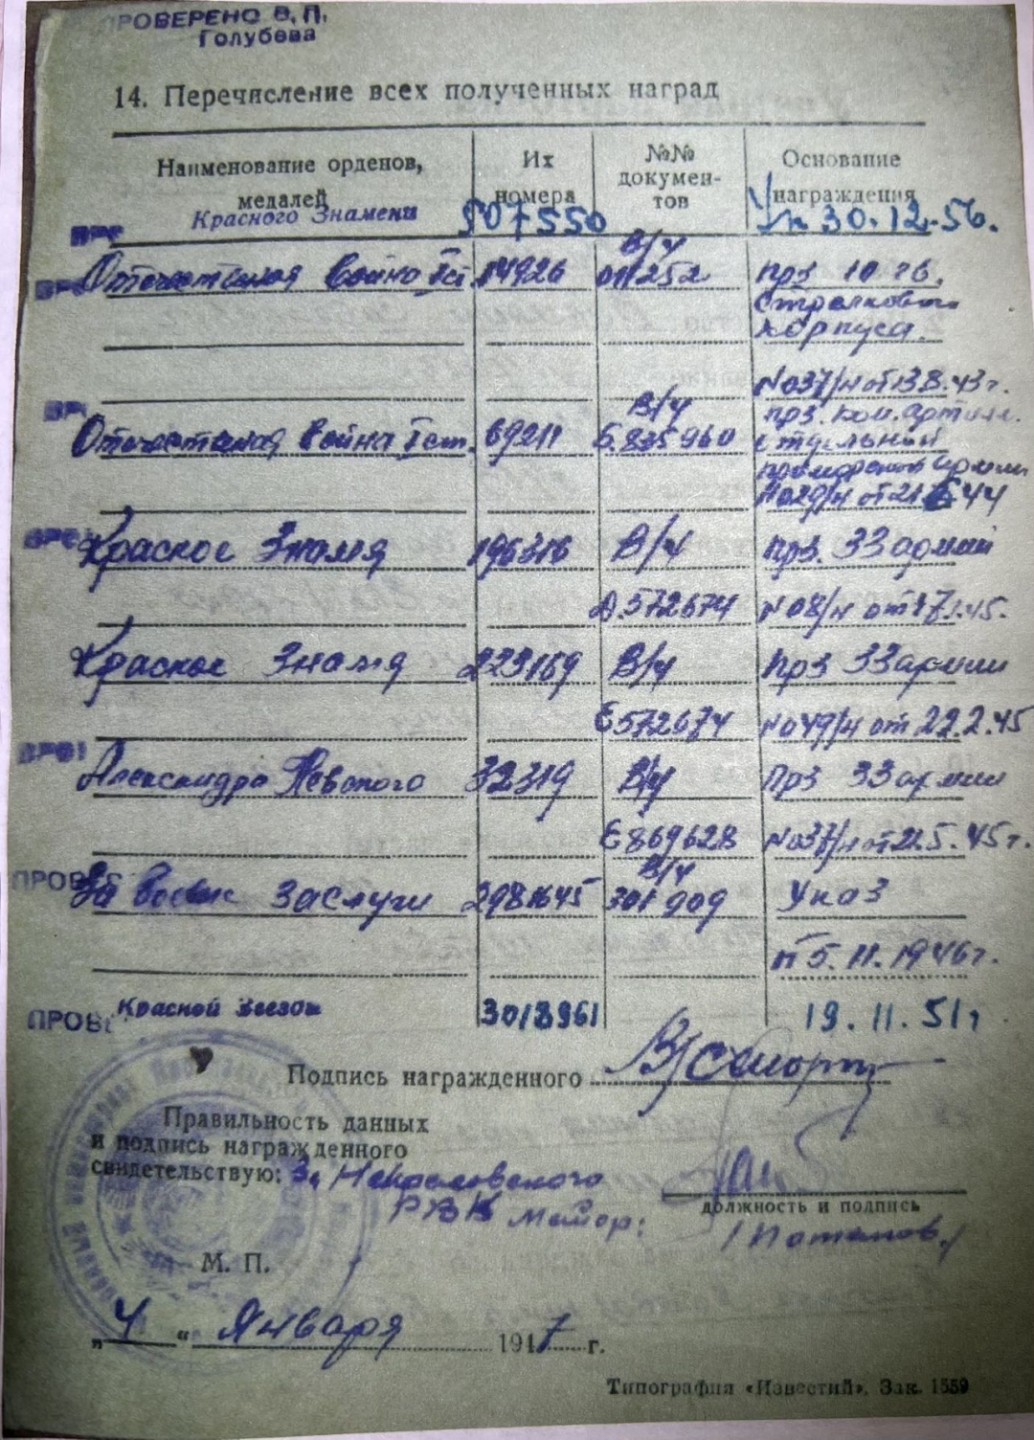 ПРОВЕРЕНО В. П.
Голубева
14. Перечисление всех полученных наград
Наименование орденов, медалей
Их номера
№№ докумен-тов
Основание награждения
Красного Знамени 507550 Ук 30.12.56.
Отечественная Война Iст 14926 В/ч 011252 прз 10 гв.
Стрелкового
корпуса.
N037/н от 13.8.43г.
Отечественная Война Iст. 69211 В/ч Б.835960 прз. ком. артил.
отдельной
приморской армии
N029/н от 21.6.44
Красное Знамя 196316 В/ч прз. 33 армии
А.572674 N08/н от 17.1.45.
Красное Знамя 223169 В/ч прз 33 армии
Е572674 N049/н от 22.2.45
Александра Невского 32319 В/ч прз 33 армии
Е869628 N037/н от 21.5.45г.
За боевые заслуги 2981645 В/ч 301909 Указ
от 5.11.1946г.
ПРОВЕ Красной Звезды 3018961 19.11.51г
Подпись награжденного
Правильность данных
и подпись награжденного
свидетельствую: За
РВК Майор:
должность и подпись
/Потапов./
М. П.
„4“ Января 1947 г.
Типография «Известий». Зак. 1559